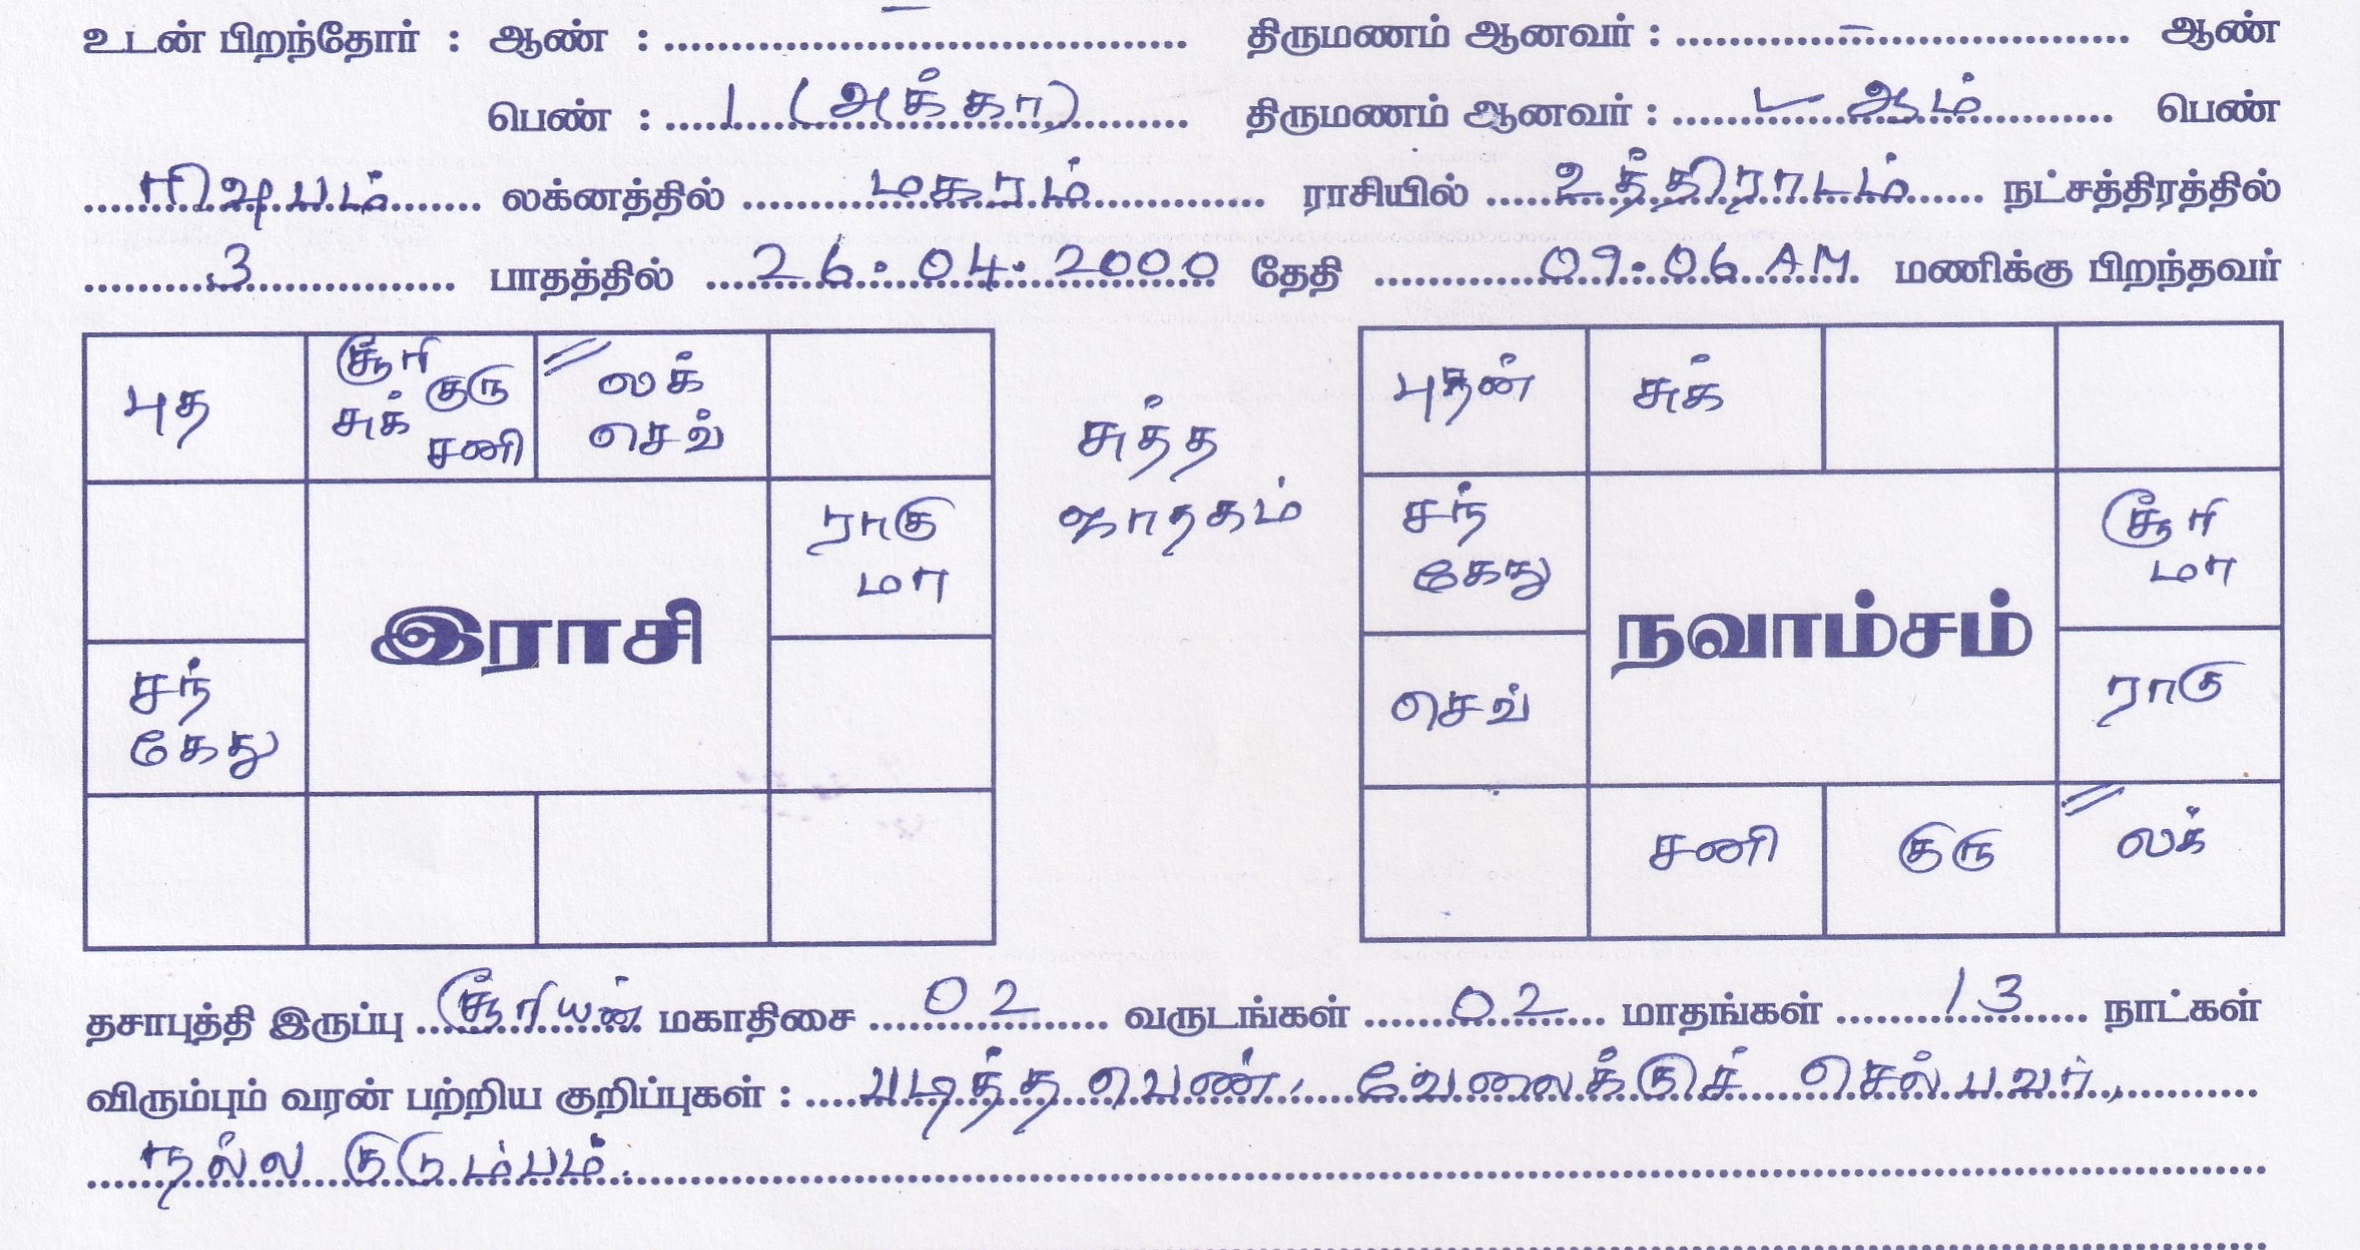 உடன் பிறந்தோர் : ஆண் : ........ – ........ திருமணம் ஆனவர் : ........ – ........ ஆண்
பெண் : ........ 1 (அக்கா) ........ திருமணம் ஆனவர் : ........ ஆம் ........ பெண்
ரிஷபம் லக்னத்தில் மகரம் ராசியில் உத்திராடம் நட்சத்திரத்தில்
3 பாதத்தில் 26.04.2000 தேதி 09.06 AM மணிக்கு பிறந்தவர்
புத
சூரி குரு
சுக் சனி
லக்
செவ்
ராகு
மா
இராசி
சந்
கேது
சுத்த
ஜாதகம்
புதன்
சுக்
சந்
கேது
சூரி
மா
நவாம்சம்
செவ்
ராகு
சனி
குரு
லக்
தசாபுத்தி இருப்பு சூரியன் மகாதிசை 02 வருடங்கள் 02 மாதங்கள் 13 நாட்கள்
விரும்பும் வரன் பற்றிய குறிப்புகள் : படித்த பெண், வேலைக்குச் செல்பவர்,
நல்ல குடும்பம்.